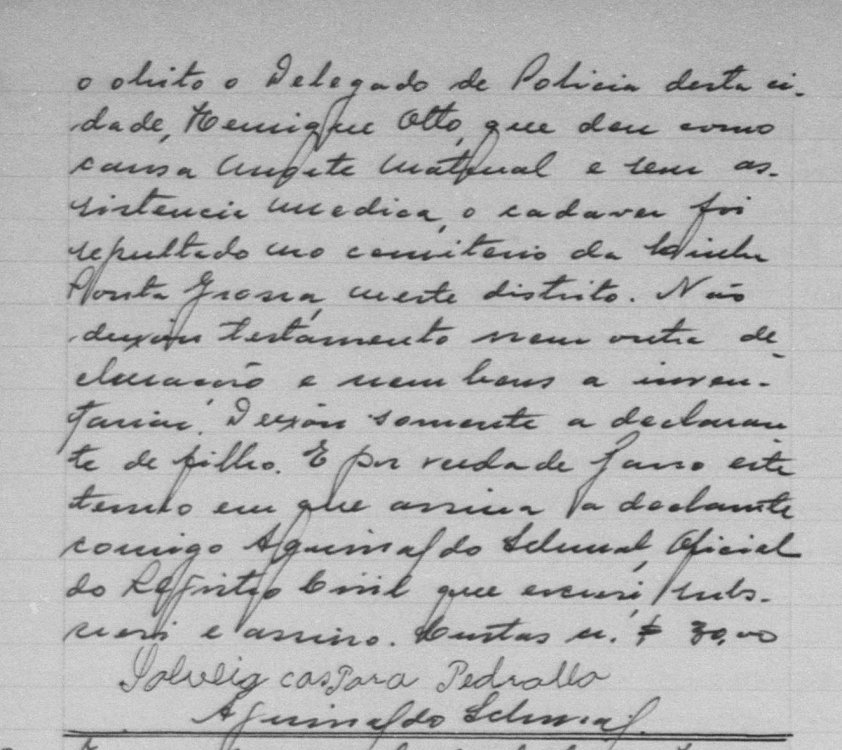 o obito o Delegado de Policia desta ci-
dade, Henrique Otto, que deu como
causa morte natural e sem as-
sistencia medica, o cadaver foi
sepultado no cemiterio da Linha
Ponta Grossa, neste distrito. Não
deixou testamento nem outra de
claração e nem bens a inven-
tariar. Deixou somente a declaran
te de filho. E por verdade faço este
termo em que assina a declarante
comigo Aguinaldo Oficial
do Registro Civil que escrevi, subs-
crevi e assino. Custas cr. $ 30,00
Solveig Pedrollo
Aguinaldo